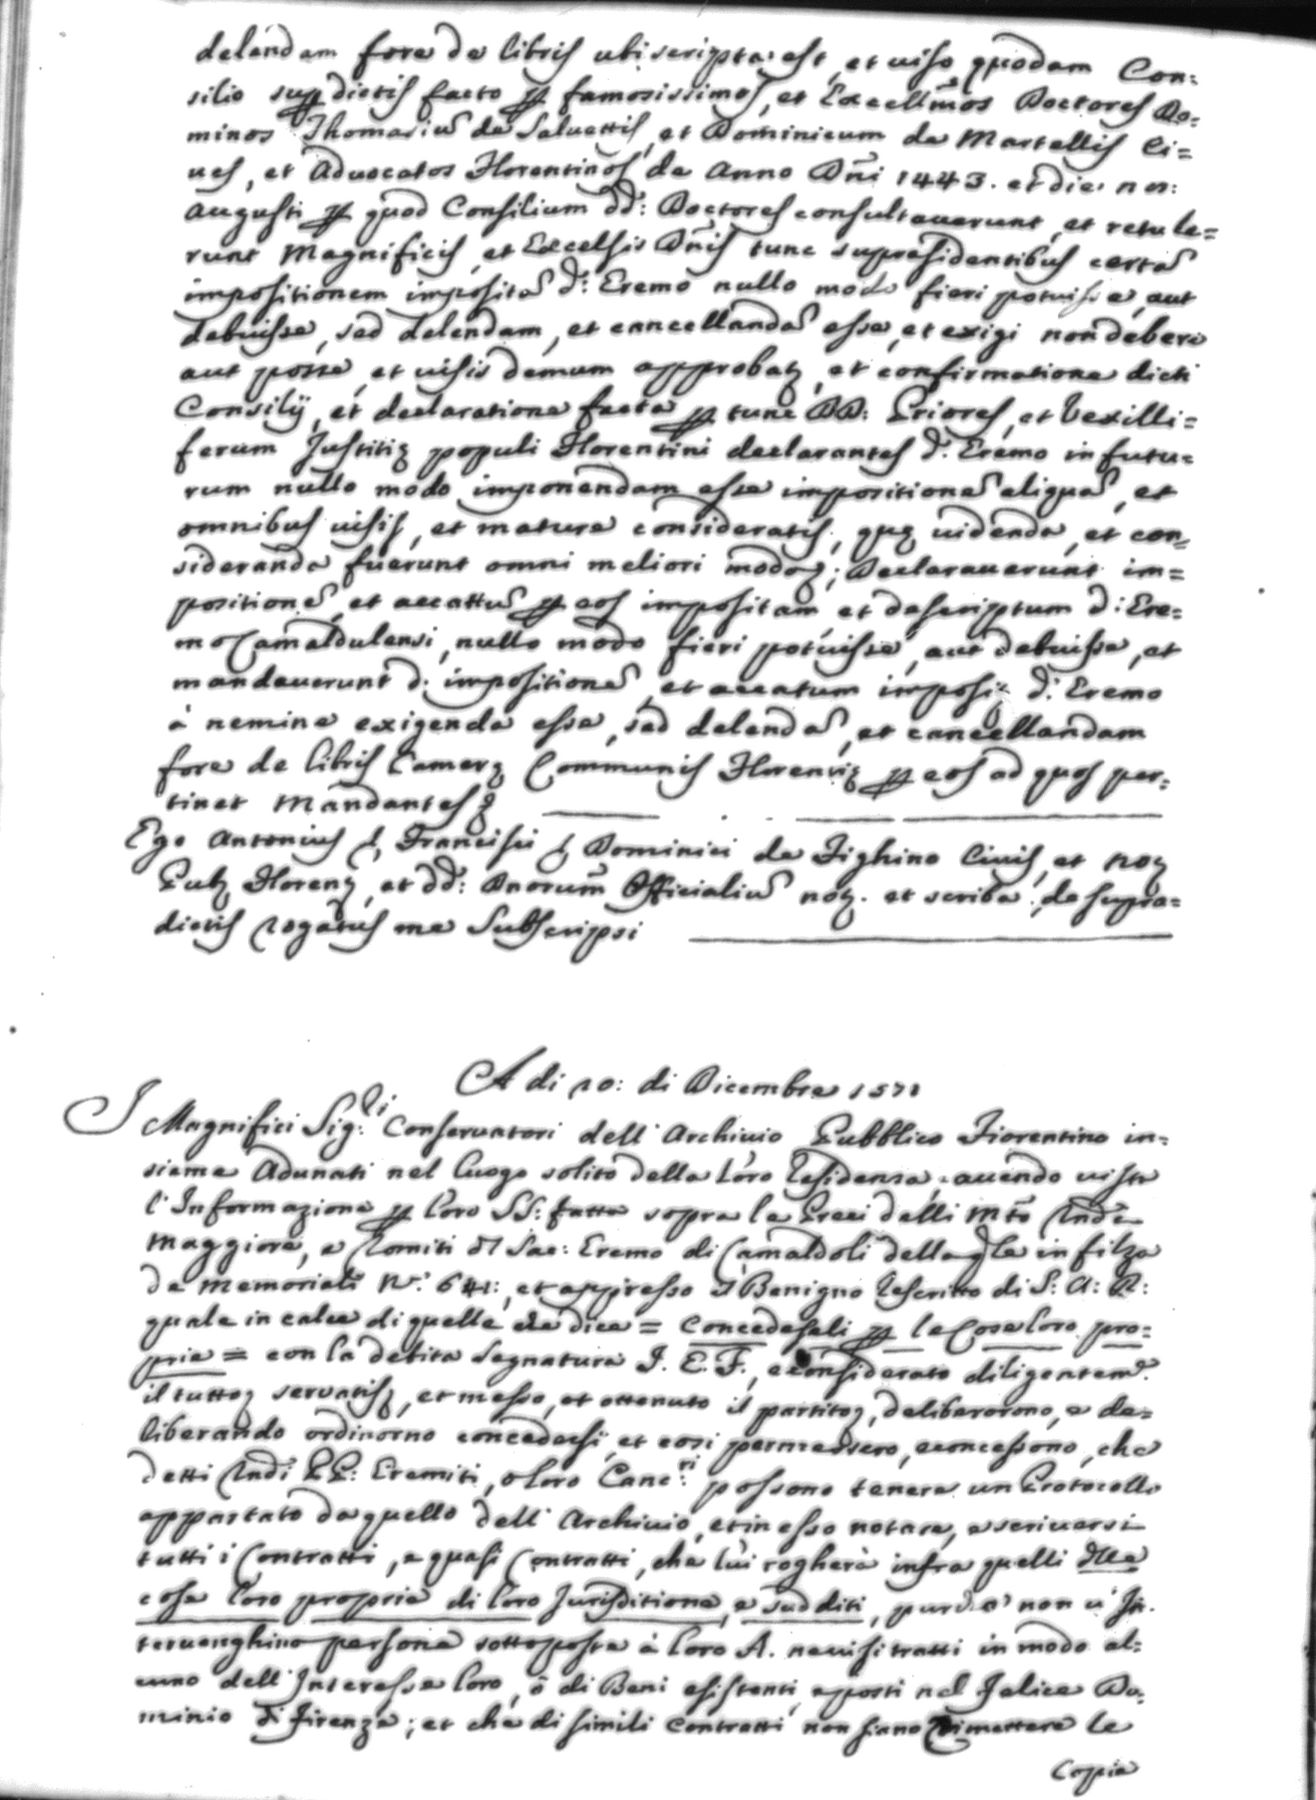 delendam fore de libris ubi scripta est, et viso quodam Con:
silio supdictis facto p famosissimos, et Excellmos Doctores Do:
minos Thomasiu de Salvettis, et Dominicum de Martellis Ci=
ves, et Advocatos Florentinos de Anno Dni 1443. et die
Augusti p quod Consilium dd: Doctores consultaverunt, et retule=
runt Magnificis, et Excelsis Dnis tunc suprasidentibus certa
impositionem imposita d: Eremo nullo modo fieri potuisse, aut
debuisse, sed delendam, et cancellanda esse, et exigi non debere
aut posse, et visis demum approbatz, et confirmatione dicti
Consilij, et declaratione facta p tunc DD: Priores, et Vexilli=
ferum Justitię populi Florentini declarantes d: Eremo in futu=
rum nullo modo imponendam esse impositione aliqua, et
omnibus visis, et mature consideratis, quę videnda, et con=
sideranda fuerunt omni meliori modoz; Declaraverunt im=
positione, et accattu p eos impositam, et descriptum d: Ere=
mo Camaldulensi, nullo modo fieri potuisse, aut debuisse, et
mandaverunt d: impositione, et accatum d: Eremo
à nemine exigenda esse, sed delenda, et cancellandam
fore de libris Camerę Communis Florentię p eos ad quos per=
tinet Mandantes z
Ego Antonius s, Francisci s Dominici de Fighino Civis, et noz
Pubz Florenz, et dd: Dnorum Officialiu notz. et scriba, de supra=
dictis rogatus me Subscripsi
A di 20: di Dicembre 1571
I Magnifici Sig:ri Conservatori dell' Archivio Pubblico Fiorentino in=
sieme Adunati nel luogo solito della loro Residenza avendo visto
l'Informazione p loro SS: fatta sopra le Preci delli Mto Rndi
Maggiore, e Romiti dl Sac: Eremo di Camaldoli della qle in filza
de Memoriali N.° 641:, et appresso il Benigno Rescritto di S: A: R:
quale in calce di quelle che dice = Concedaseli p le Cose loro pro=
prie = con la debita segnatura J. E. F., e considerato diligentem:e
il tuttoz servatisz, et messo, et ottenuto il partitoz, deliberorono, e de=
liberando ordinorno concedersi, et cosi permessero, e concessono, che
detti Rndi PP: Eremiti, o loro Canc:ri possono tenere un Protocollo
appartato da quello dell' Archivio, et in esso notare, e scriversi
tutti i Contratti, e quasi Contratti, che lui rogherà infra quelli dlle
cose loro proprie di loro Jurisditione, e sudditi, purche non v' In=
tervenghino persone sottoposte à loro A. ne visi tratti in modo al=
cuno dell' Interesse loro, ò di Beni esistenti, e posti nel Felice Do=
minio di Firenze; et che di simili contratti non siano rimettere le
Copie